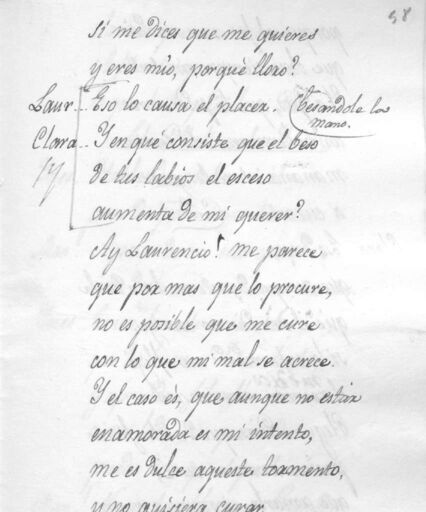 58
si me dices que me quieres
y eres mio, porquè lloro?
Laur... Eso lo causa el placer. (Besandole la mano.
Clara.. Y en què consiste que el beso
de tus labios el esceso
aumenta de mi querer?
Ay Laurencio! me parece
que por mas que lo procure,
no es posible que me cure
con lo que mi mal se acrece.
Y el caso és, que aunque no estar
enamorada es mi intento,
me es dulce aqueste tormento,
y no quisiera curar.